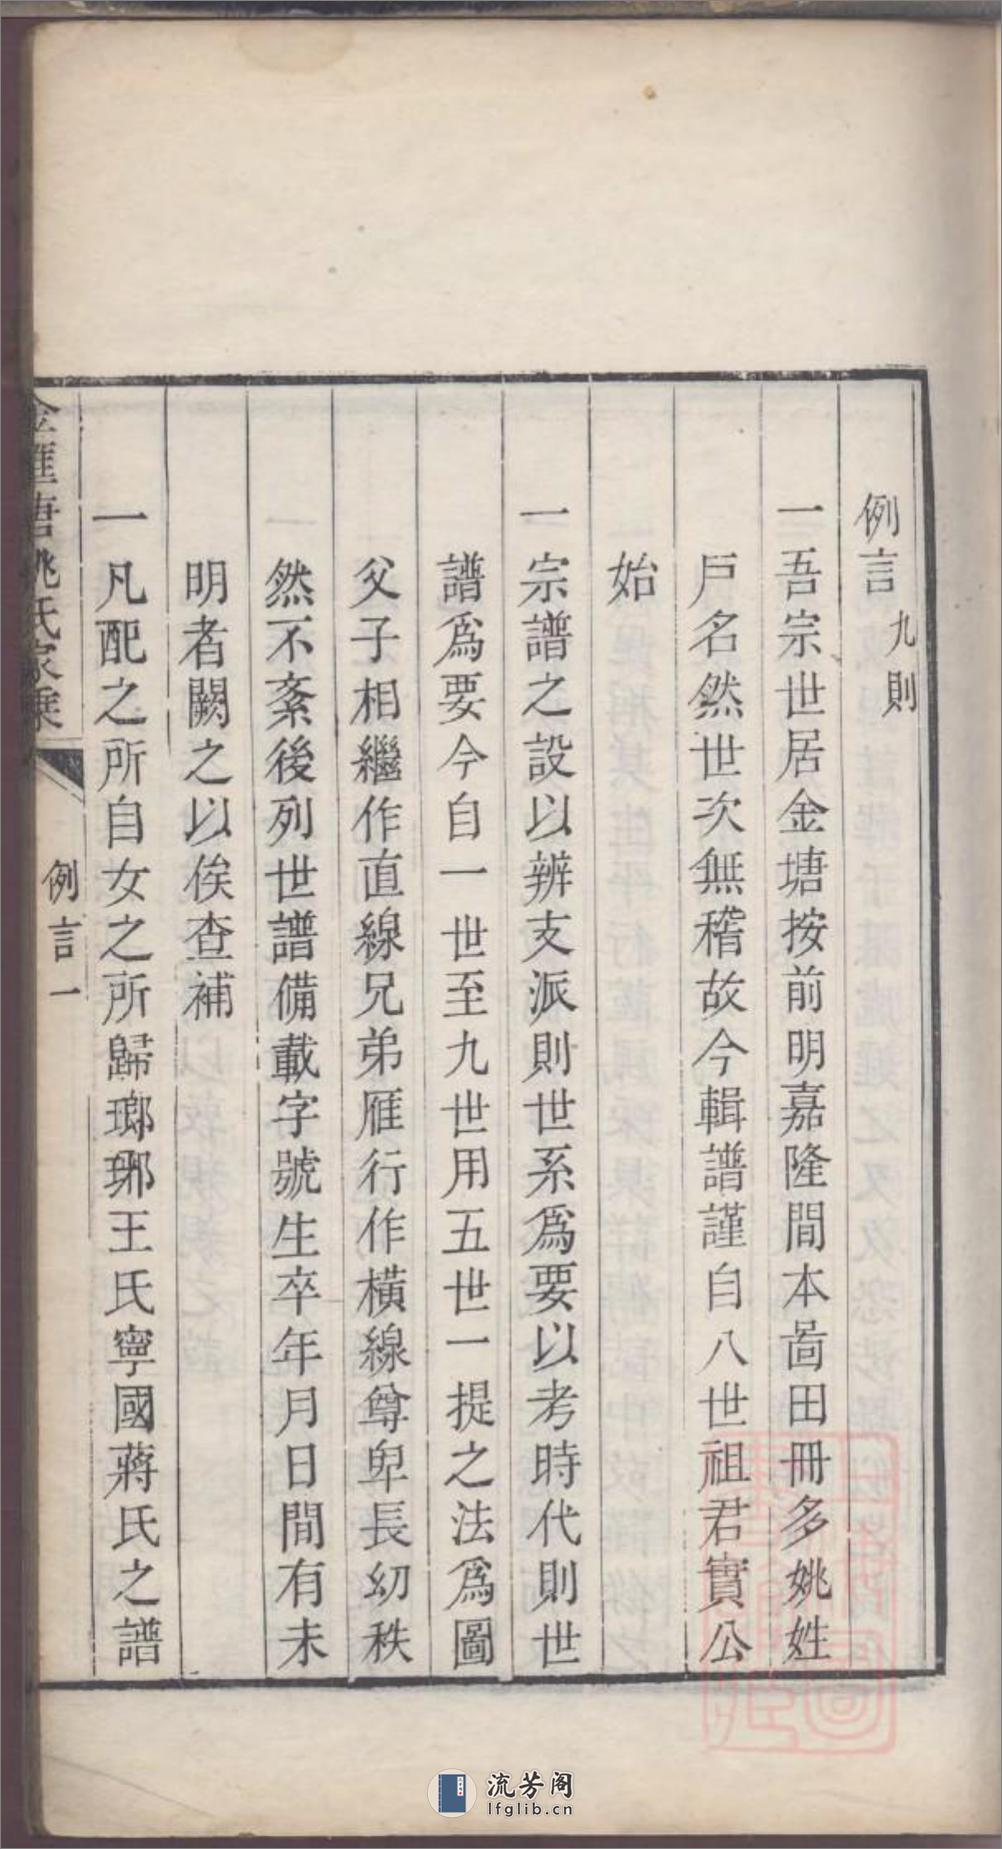 例言 九則
一吾宗世居金塘按前明嘉隆間本啚田冊多姚姓
戶名然世次無稽故今輯譜謹自八世祖君實公
始
一宗譜之設以辨支派則世系爲要以考時代則世
譜爲要今自一世至九世用五世一提之法爲圖
父子相繼作直線兄弟雁行作橫線尊卑長幼秩
然不紊後列世譜備載字號生卒年月日間有未
明者闕之以俟查補
一凡配之所自女之所歸瑯琊王氏寧國蔣氏之譜
金匯唐姚氏家乘
例言 一
流芳阁
lfglib.cn